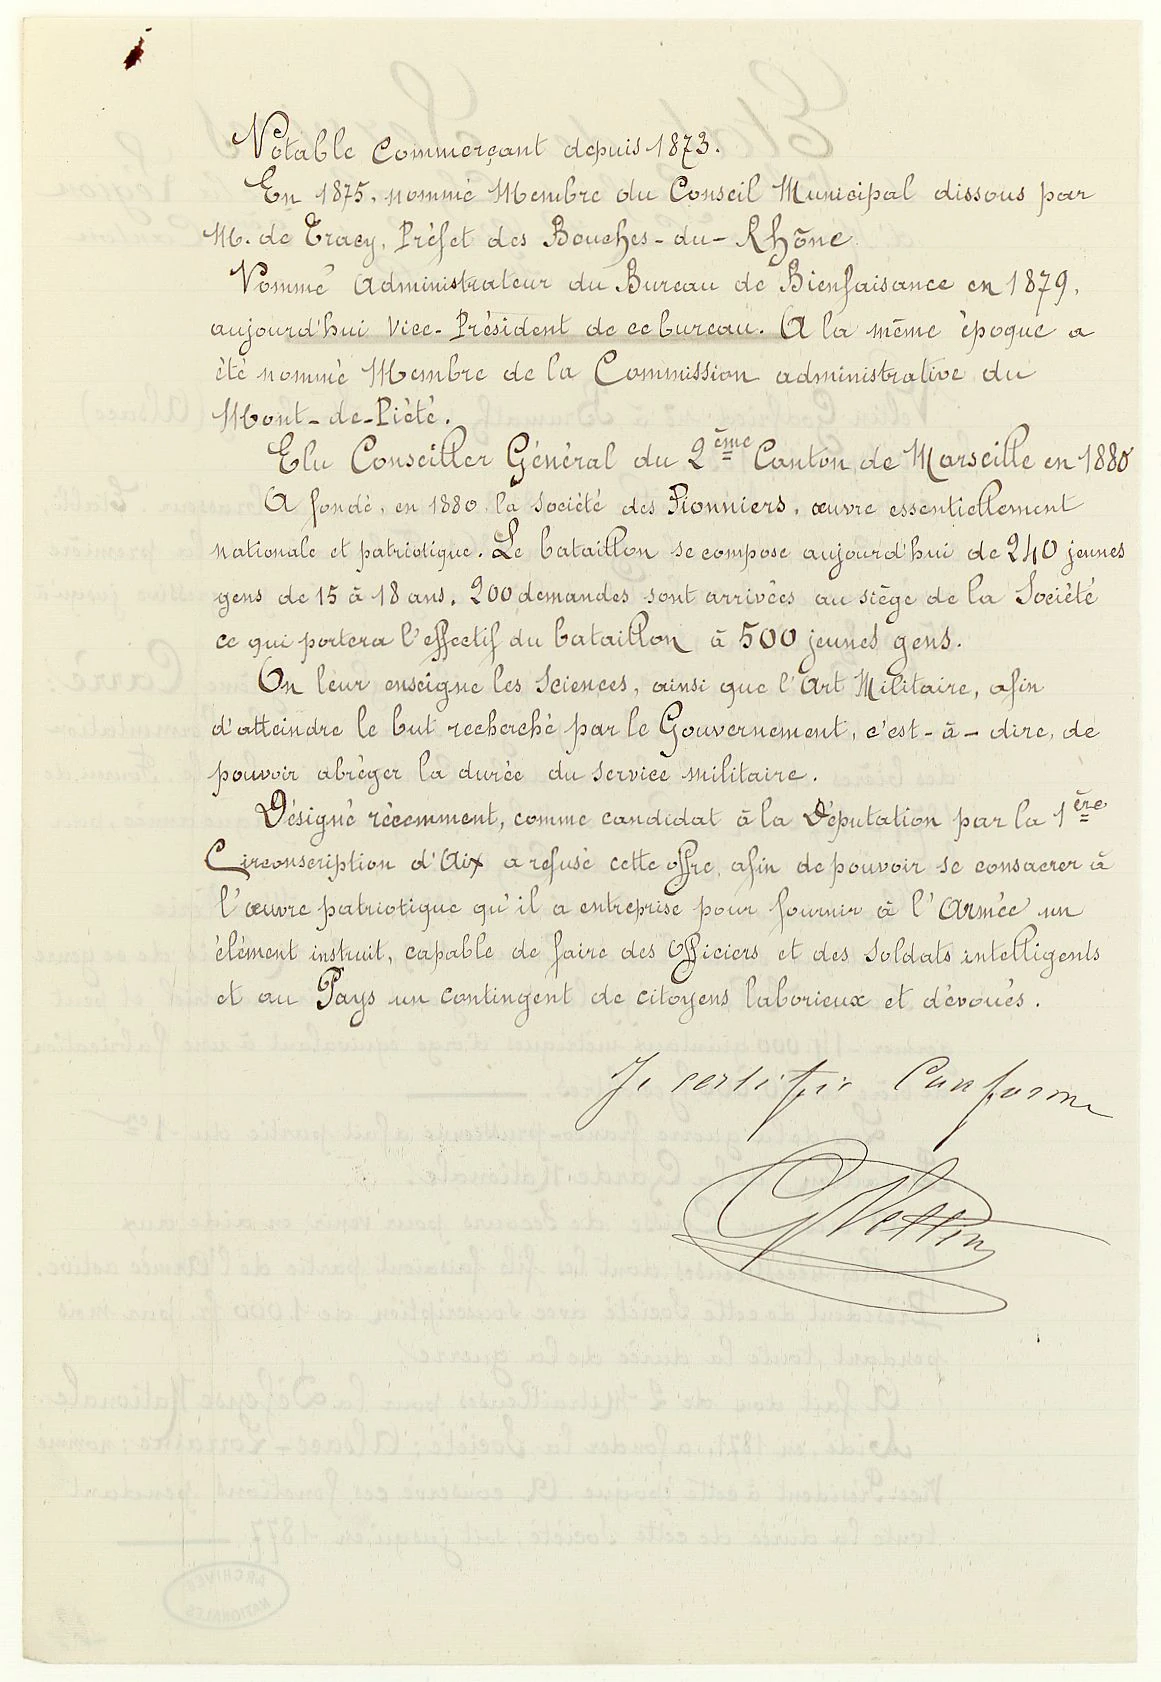 Notable Commerçant depuis 1873.
En 1875, nommé Membre du Conseil Municipal dissous par
M. de Tracy, Préfet des Bouches-du-Rhône
Nommé Administrateur du Bureau de Bienfaisance en 1879,
aujourd'hui Vice-Président de ce bureau. A la même époque a
été nommé Membre de la Commission administrative du
Mont-de-Piété.
Elu Conseiller Général du 2ème Canton de Marseille en 1880
A fondé, en 1880, la Société des Pionniers, œuvre essentiellement
nationale et patriotique. Le bataillon se compose aujourd'hui de 240 jeunes
gens de 15 à 18 ans. 200 demandes sont arrivées au siège de la Société
ce qui portera l'effectif du bataillon à 500 jeunes gens.
On leur enseigne les Sciences, ainsi que l'Art Militaire, afin
d'atteindre le but recherché par le Gouvernement, c'est-à-dire, de
pouvoir abréger la durée du service militaire.
Désigné récemment, comme candidat à la Députation par la 1ère
Circonscription d'Aix a refusé cette offre, afin de pouvoir se consacrer à
l'œuvre patriotique qu'il a entreprise pour fournir à l'Armée un
élément instruit, capable de faire des Officiers et des Soldats intelligents
et au Pays un contingent de citoyens laborieux et dévoués.
Je certifie Conforme
G Velten
ARCHIVES
NATIONALES